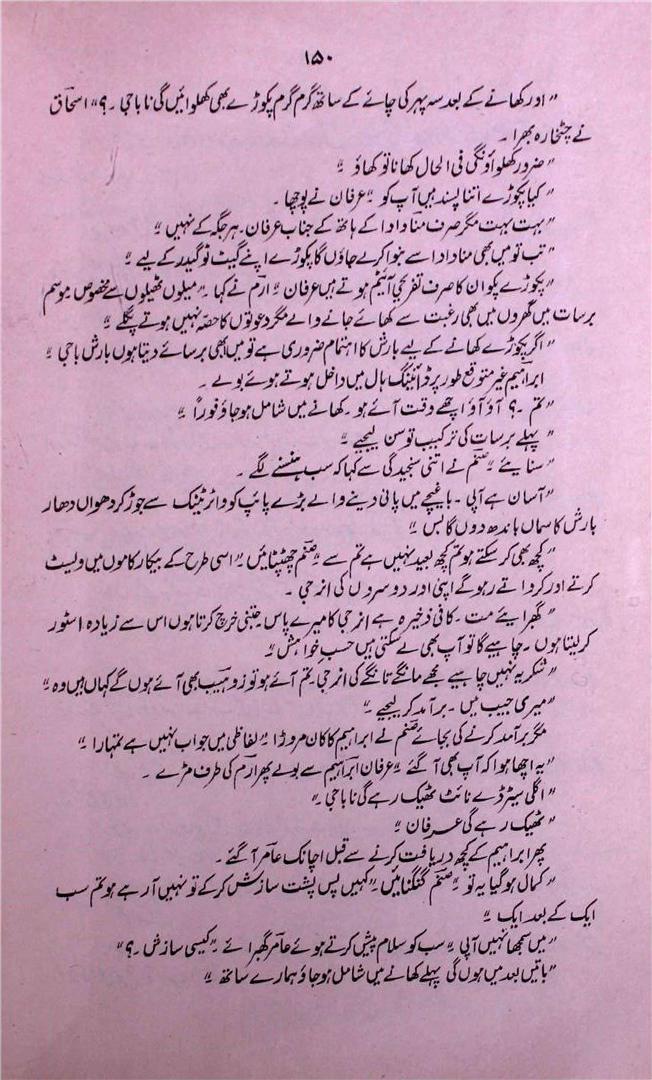 ۱۵۰
"اور کھانے کے بعد سہ پہر کی چائے کے ساتھ گرم گرم پکوڑے بھی کھلوائیں گی نا باجی ۔؟" اسحاق
نے چٹخارہ بھرا ۔
"ضرور کھلواؤنگی فی الحال کھانا تو کھاؤ ۔"
"کیا پکوڑے اتنا پسند ہیں آپ کو ۔" عرفان نے پوچھا ۔
"بہت بہت مگر صرف منا دادا کے ہاتھ کے جناب عرفان ۔ ہر جگہ کے نہیں ۔"
"تب تو میں بھی منا دادا سے بنوا کر لے جاؤں گا پکوڑے اپنے گیٹ ٹو گیدر کے لیے ۔"
"پکوڑے پکوان کا صرف تفریحی آئیٹم ہوتے ہیں عرفان ۔" ارم نے کہا ۔ "میلوں ٹھیلوں سے مخصوص ۔ موسم
برسات میں گھروں میں بھی رغبت سے کھائے جانے والے مگر دعوتوں کا حصہ نہیں ہوتے پگلے ۔"
"اگر پکوڑے کھانے کے لیے بارش کا اہتمام ضروری ہے تو میں ابھی برسائے دیتا ہوں بارش باجی ۔"
ابراہیم غیر متوقع طور پر ڈائیننگ ہال میں داخل ہوتے ہوئے بولے ۔
"تم ۔؟ آؤ آؤ اچھے وقت آئے ہو ۔ کھانے میں شامل ہو جاؤ فوراً ۔"
"پہلے برسات کی ترکیب تو سن لیجیے ۔"
"سنایئے ۔" صنم نے اتنی سنجیدگی سے کہا کہ سب ہنسنے لگے ۔
"آسان ہے آپی ۔ باغیچے میں پانی دینے والے بڑے پائپ کو واٹر ٹینک سے جوڑ کر دھواں دھار
بارش کا سماں باندھ دوں گا بس ۔"
"کچھ بھی کر سکتے ہو تم کچھ بعید نہیں ہے تم سے ۔" صنم چھنپٹائیں ۔ "اسی طرح کے بیکار کاموں میں ویسٹ
کرتے اور کرواتے رہو گے اپنی اور دوسروں کی انرجی ۔
"گھبرایئے مت ۔ کافی ذخیرہ ہے انرجی کا میرے پاس ۔ جتنی خرچ کرتا ہوں اس سے زیادہ اسٹور
کر لیتا ہوں ۔ چاہیے گا تو آپ بھی لے سکتی ہیں حسبِ خواہش ۔"
"شکریہ نہیں چاہیے مجھے مانگے تانگے کی انرجی ۔ تم آئے ہو تو زوہیب بھی آئے ہوں گے کہاں ہیں وہ ۔"
"میری جیب میں ۔ برآمد کر لیجیے ۔"
مگر برآمد کرنے کی بجائے صنم نے ابراہیم کا کان مروڑا ۔" لفاظی میں جواب نہیں ہے تمہارا ۔"
"یہ اچھا ہوا کہ آپ بھی آ گئے ۔" عرفان ابراہیم سے بولے پھر ارم کی طرف مڑے ۔
"اگلی سیٹرڈے نائٹ ٹھیک رہے گی نا باجی ۔"
"ٹھیک رہے گی عرفان ۔"
پھر ابراہیم کے کچھ دریافت کرنے سے قبل اچانک عامر آ گئے ۔
"کمال ہو گیا یہ تو ۔" صنم گنگنائیں ۔ "کہیں پس پشت سازش کر کے تو نہیں آ رہے ہو تم سب
ایک کے بعد ایک ۔"
"میں سمجھا نہیں آپی ۔" سب کو سلام پیش کرتے ہوئے عامر گھبرائے ۔ "کیسی سازش ۔؟"
"باتیں بعد میں ہوں گی پہلے کھانے میں شامل ہو جاؤ ہمارے ساتھ ۔"